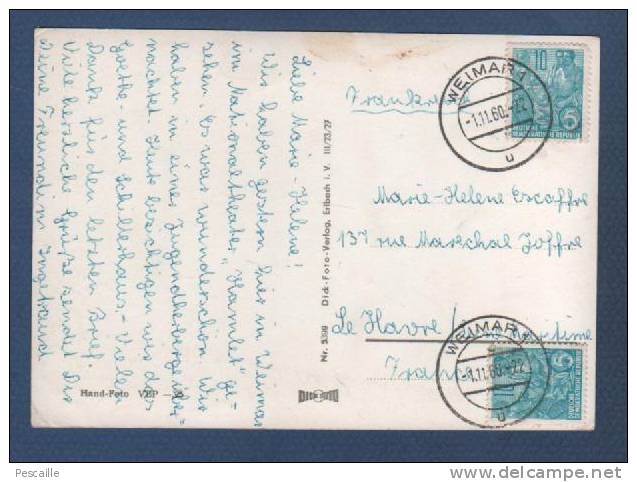 Liebe Marie-Helene!
Wir haben gestern hier in Weimar
im Nationaltheater "Hamlet" ge-
sehen. Es war wunderschön. Wir
haben in einer Jugendherberge über-
nachtet. Heute besichtigen wir das
Goethe- und Schillerhaus. - Vielen
Dank für den letzten Brief.
Viele herzliche Grüße sendet Dir
Deine Freundin Ingetraud
Hand-Foto VEP
Nr. 5309 Dick-Foto-Verlag, Erlbach i. V. III/23/27
Frankreich
Marie-Helene Escoffre
13 rue Maréchal Joffre
Le Havre / maritime
France
WEIMAR 1
-1.11.60.-22
u
10
5
DEUTSCHE
DEMOKRATISCHE REPUBLIK
WEIMAR 1
-1.11.60.-22
u
5
Pescaille
http://www.delcampe.net